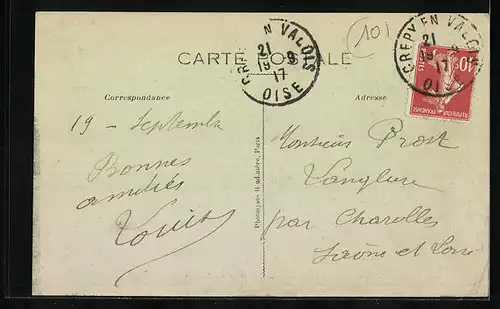 CREPY EN VALOIS
21
19 9
17
OISE
(10)
CREPY EN VALOIS
21
9
17
OISE
10c
CARTE POSTALE
Correspondance
Adresse
19 - Septembre
Bonnes
amitiés
Louis
Phototypie Baudinière, Paris
Monsieur Prost
par Charolles
Saône et Loire